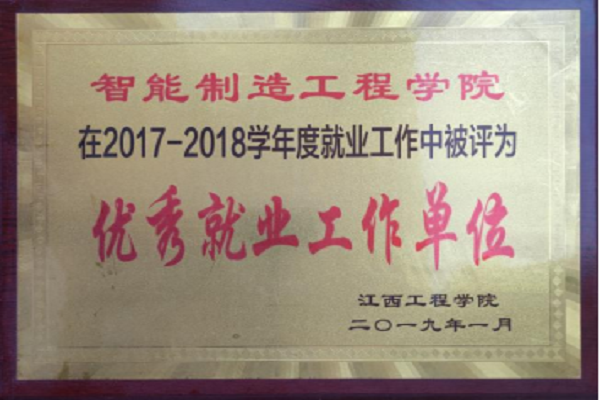 智能制造工程学院
在2017-2018学年度就业工作中被评为
优秀就业工作单位
江西工程学院
二〇一九年一月